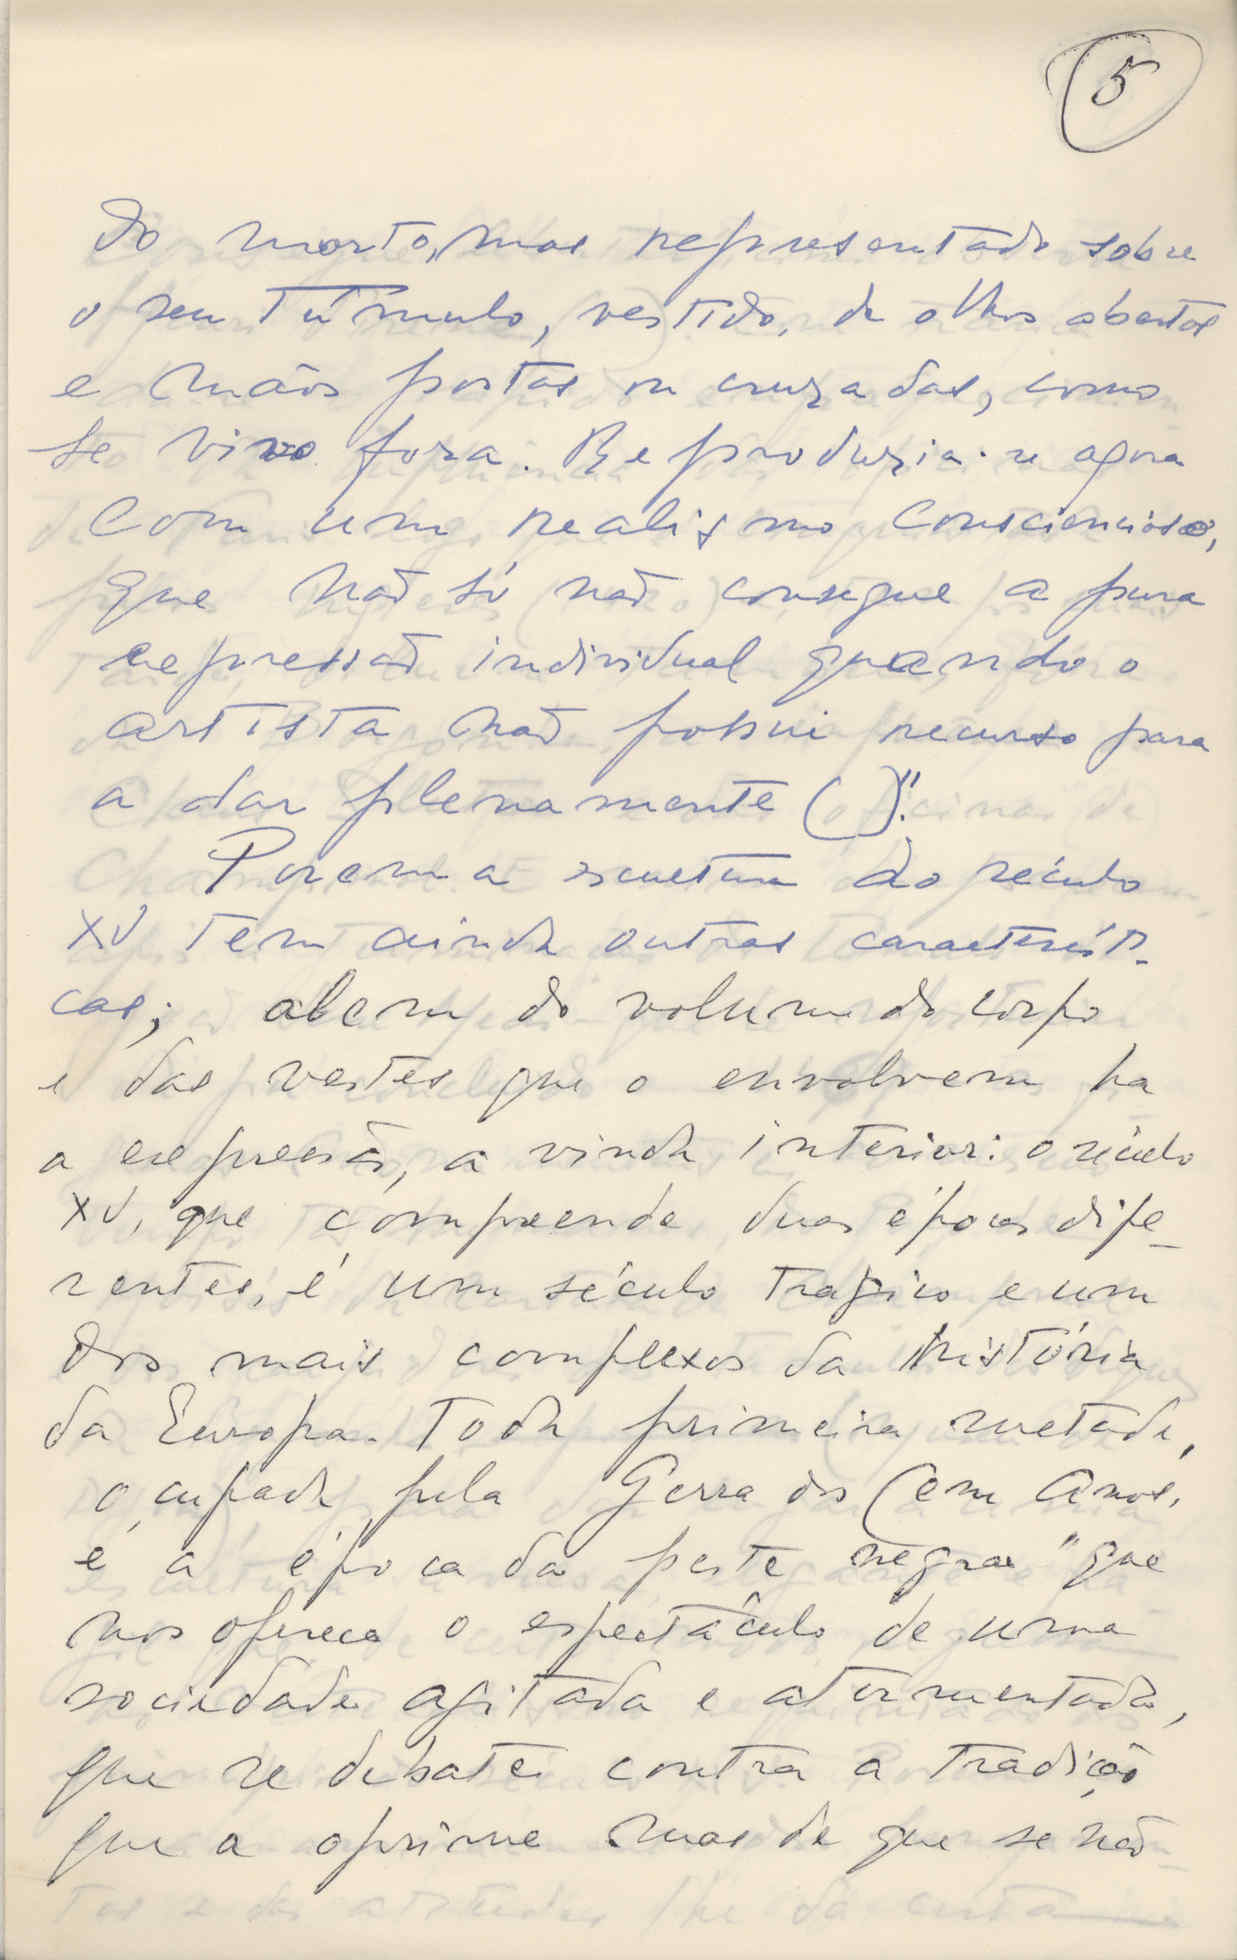 5
do morto, mas representado sobre
o seu túmulo, vestido, de olhos abertos
e mãos postas ou cruzadas, como
se vivo fora. Reproduzia-se agora
com um realismo consciencioso,
que não só não consegue a pura
expressão individual quando o
artista não possui recurso para
a dar plenamente ( )".
Porem a escultura do século
XV tem ainda outras característi-
cas; alem do volume do corpo
e das vestes que o envolvem ha
a expressão, a vinda interior: o século
XV, que compreende duas épocas dife-
rentes, é um século tragico e um
dos mais complexos da história
da Europa. Toda primeira metade,
ocupada pela Gerra dos Cem Anos,
é a época da peste negra "que
nos oferece o espectáculo de uma
sociedade agitada e atormentada,
que se debate contra a tradição
que a oprime mas de que se não